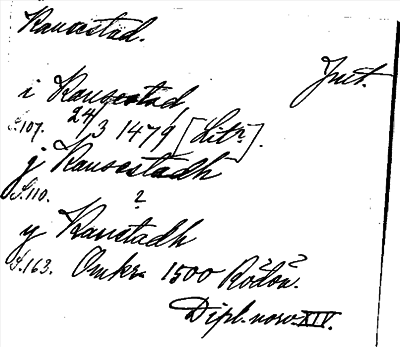 Rauxstad.
Jmt.
i Rauxestad,
S.107. 24/3 1479 [Litr.].
j Rauxestadh
S.110. ?
y Raustadh
S.163. Omkr. 1500 Rödön.
Dipl. norv. XIV.